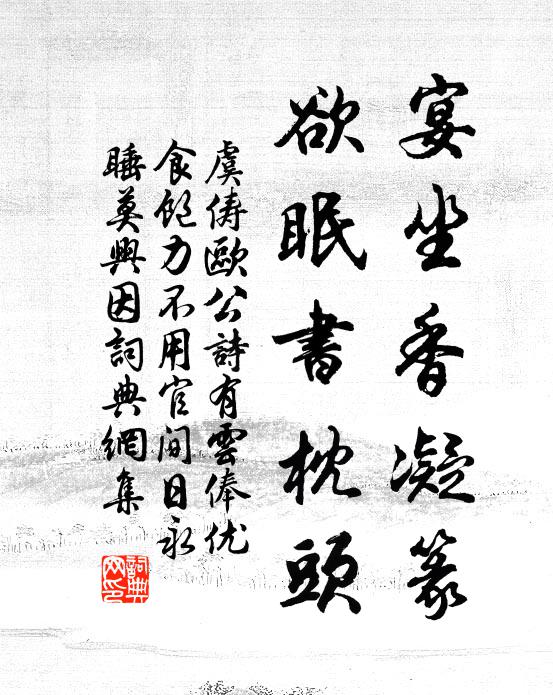 宴坐香凝篆
欲眠書枕頭
虞儔歐公詩有雲俸優
食飽力不用官閒日永
睡莫興因詞典網集
詞典
网印